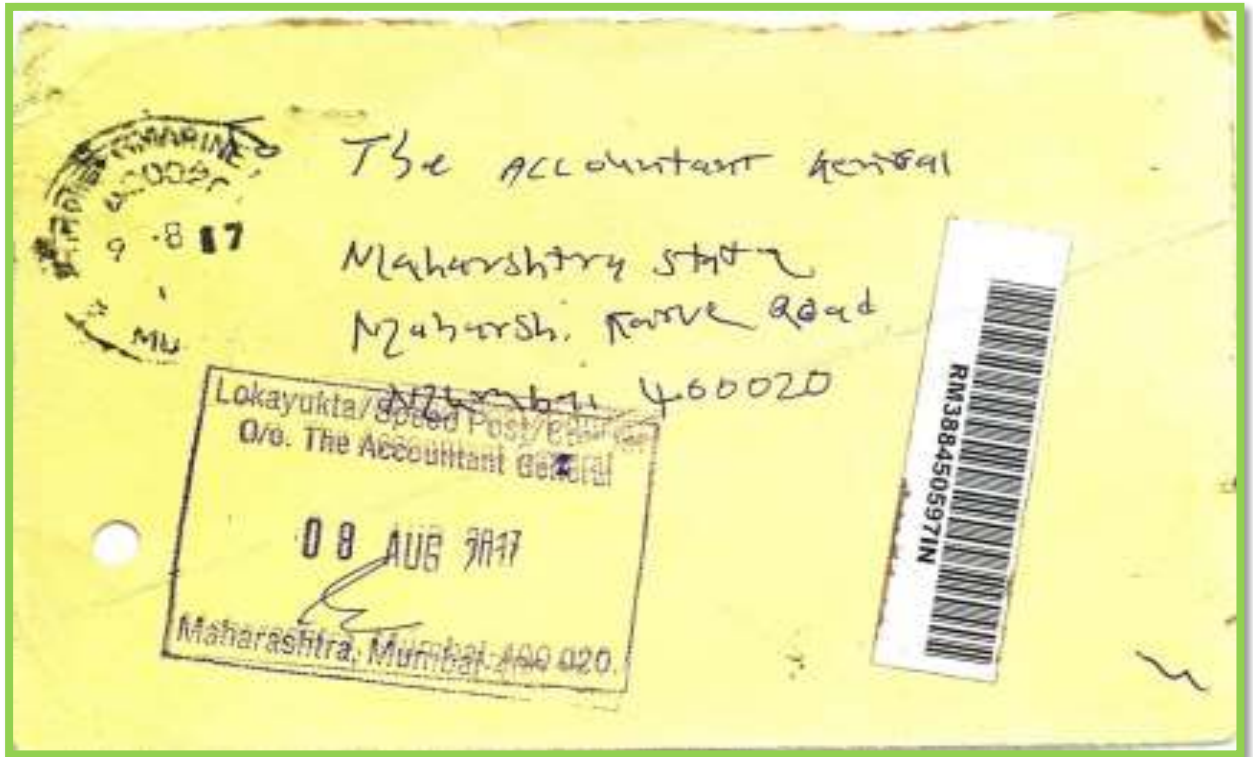 MARINE
9 -8 17
MU
The Accountant General
Maharshtra state
Maharshi Karve Road
Mumbai 400020
Lokayukta/Speed Post/
O/o. The Accountant General
08 AUG 2017
Maharashtra, Mumbai-400 020.
RM388450597IN